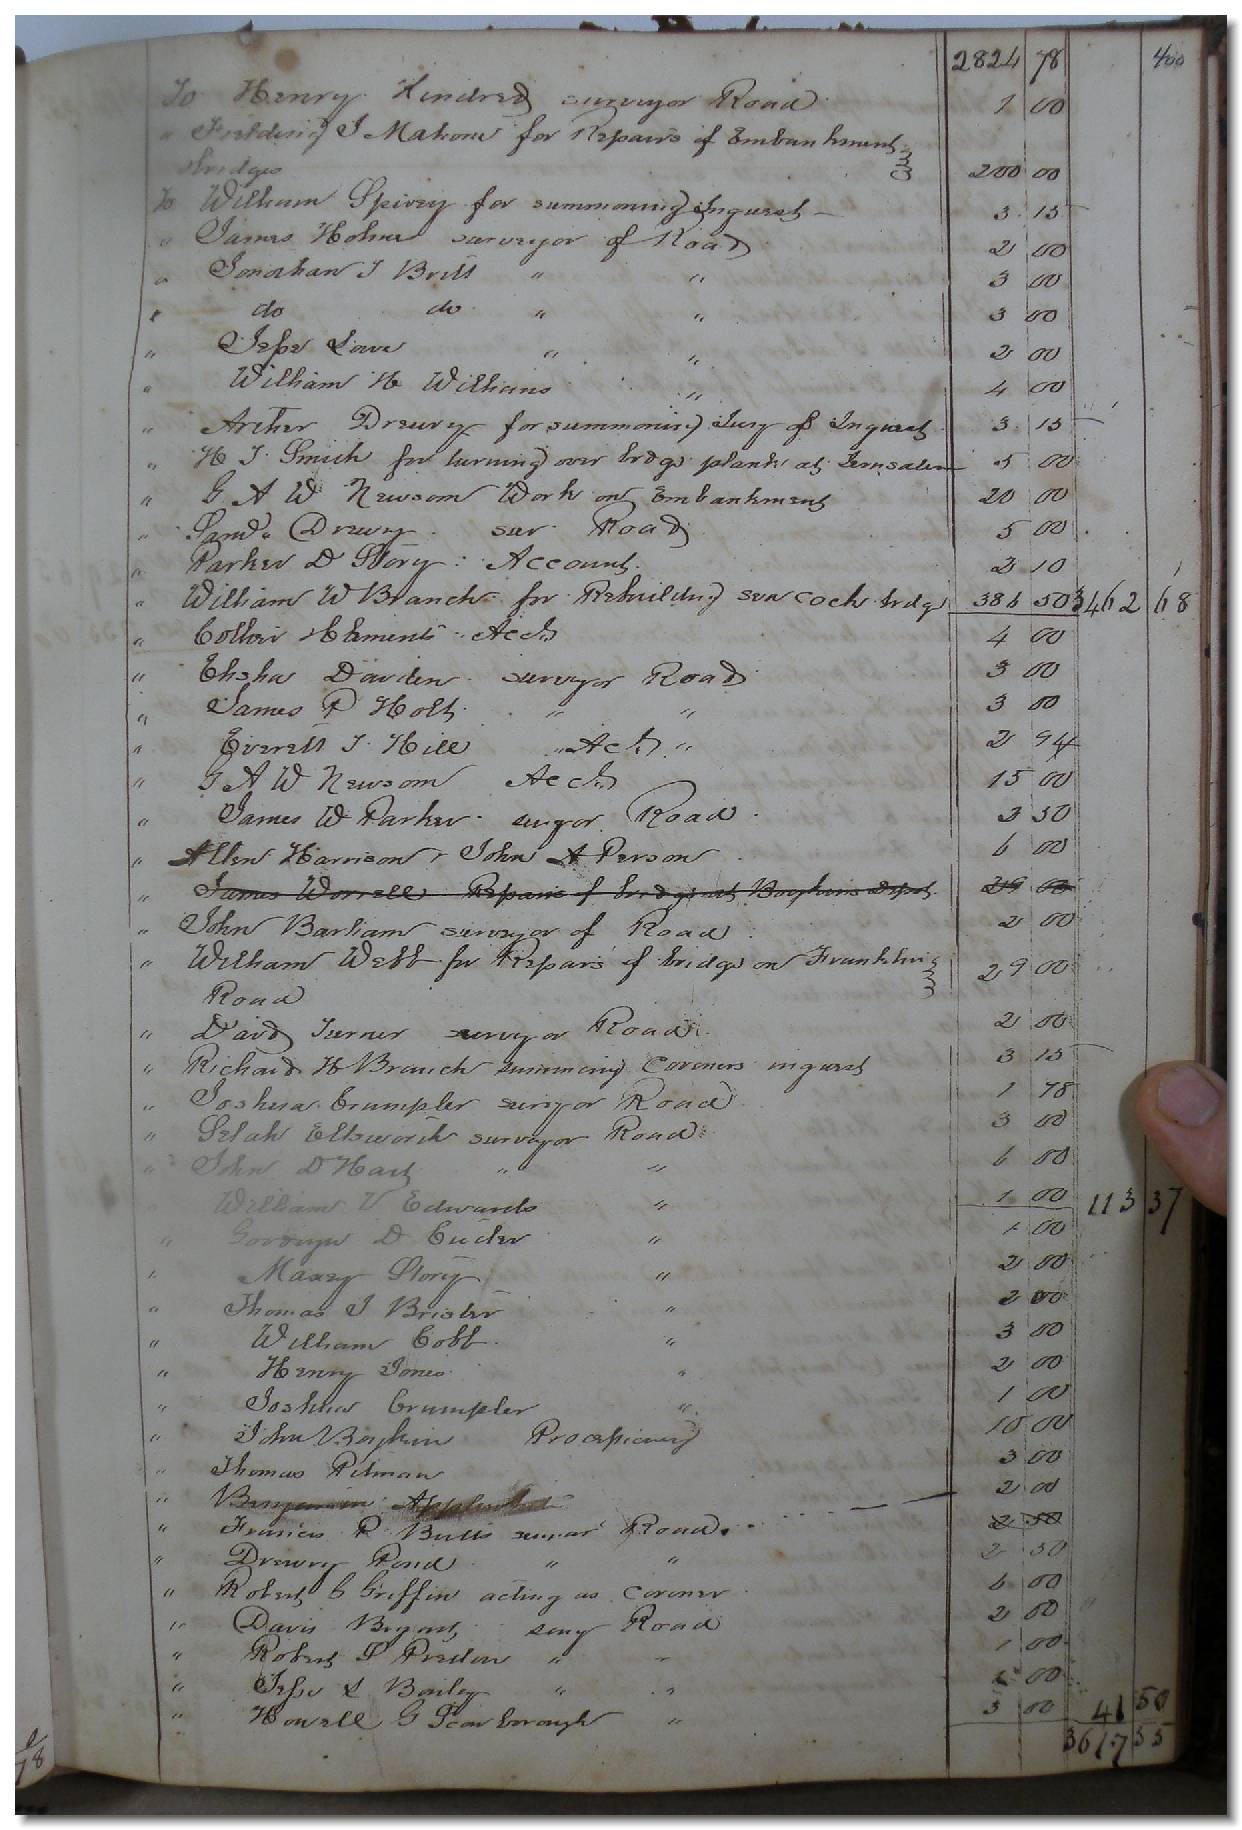 2824 78 400
To Henry Kindred surveyor Road 1 00
" Fielding J Mahone for Repairs of Embankment
bridges 200 00
To William Spivey for summoning Inquest 3 15
" James Holmes surveyor of Road 2 00
" Jonathan J Britt " " 3 00
" do do " " 3 00
" Jesse Lowe " " 2 00
" William H Williams " 4 00
" Arther Drewry for summoning Jury of Inquest 3 15
" H J Smith for turning over brdge plank at Jerusalem 5 00
" G A W Newsom Work on Embankment 20 00
" Saml Drewry sur Road 5 00
" Parker D Story Account 2 10
" William W Branch for Rebuilding seacock brdg 386 50 3462 68
" Collin Hements Acct 4 00
" Elisha Darden surveyor Road 3 00
" James P Holt " " 3 00
" Everett J Hill " Acct " 2 94
" G A W Newsom Acct 15 00
" James W Parker suryor Road 3 50
" Allen Harrison & John A Person 6 00
" James Worrell Repairs of bridge at Boykins Depot 29 00
" John Barham surveyor of Road 2 00
" William Webb for Repairs of bridge on Franklin 29 00
Road
" David Turner surveyor Road 2 00
" Richard H Branch summoning Coroners inquest 3 15
" Joshua Crumpler survyor Road 1 78
" Selah Ellsworth surveyor Road 3 00
" John D Hart " " 6 00
William V Edwards " 1 00 113 37
" D " 1 00
" Maxey Story " 2 00
" Thomas J Brister " 2 00
" William Cobb " 3 00
" Henry Jones " 2 00
" Joshua Crumpler " 1 00
" John Boykin Processioning 10 00
" Thomas Pitman 3 00
" Benjamin 2 00
" Francis R Butts survor Road 2 50
" Drewry Pond " " 2 50
" Robert C Griffin acting as coroner 6 00
" Davis Bryant survy Road 2 00
" Robert S Preston " " 1 00
" Jesse L Bailey " " 00
" Howell G Scarborough " 3 00 41 50
3617 55
18